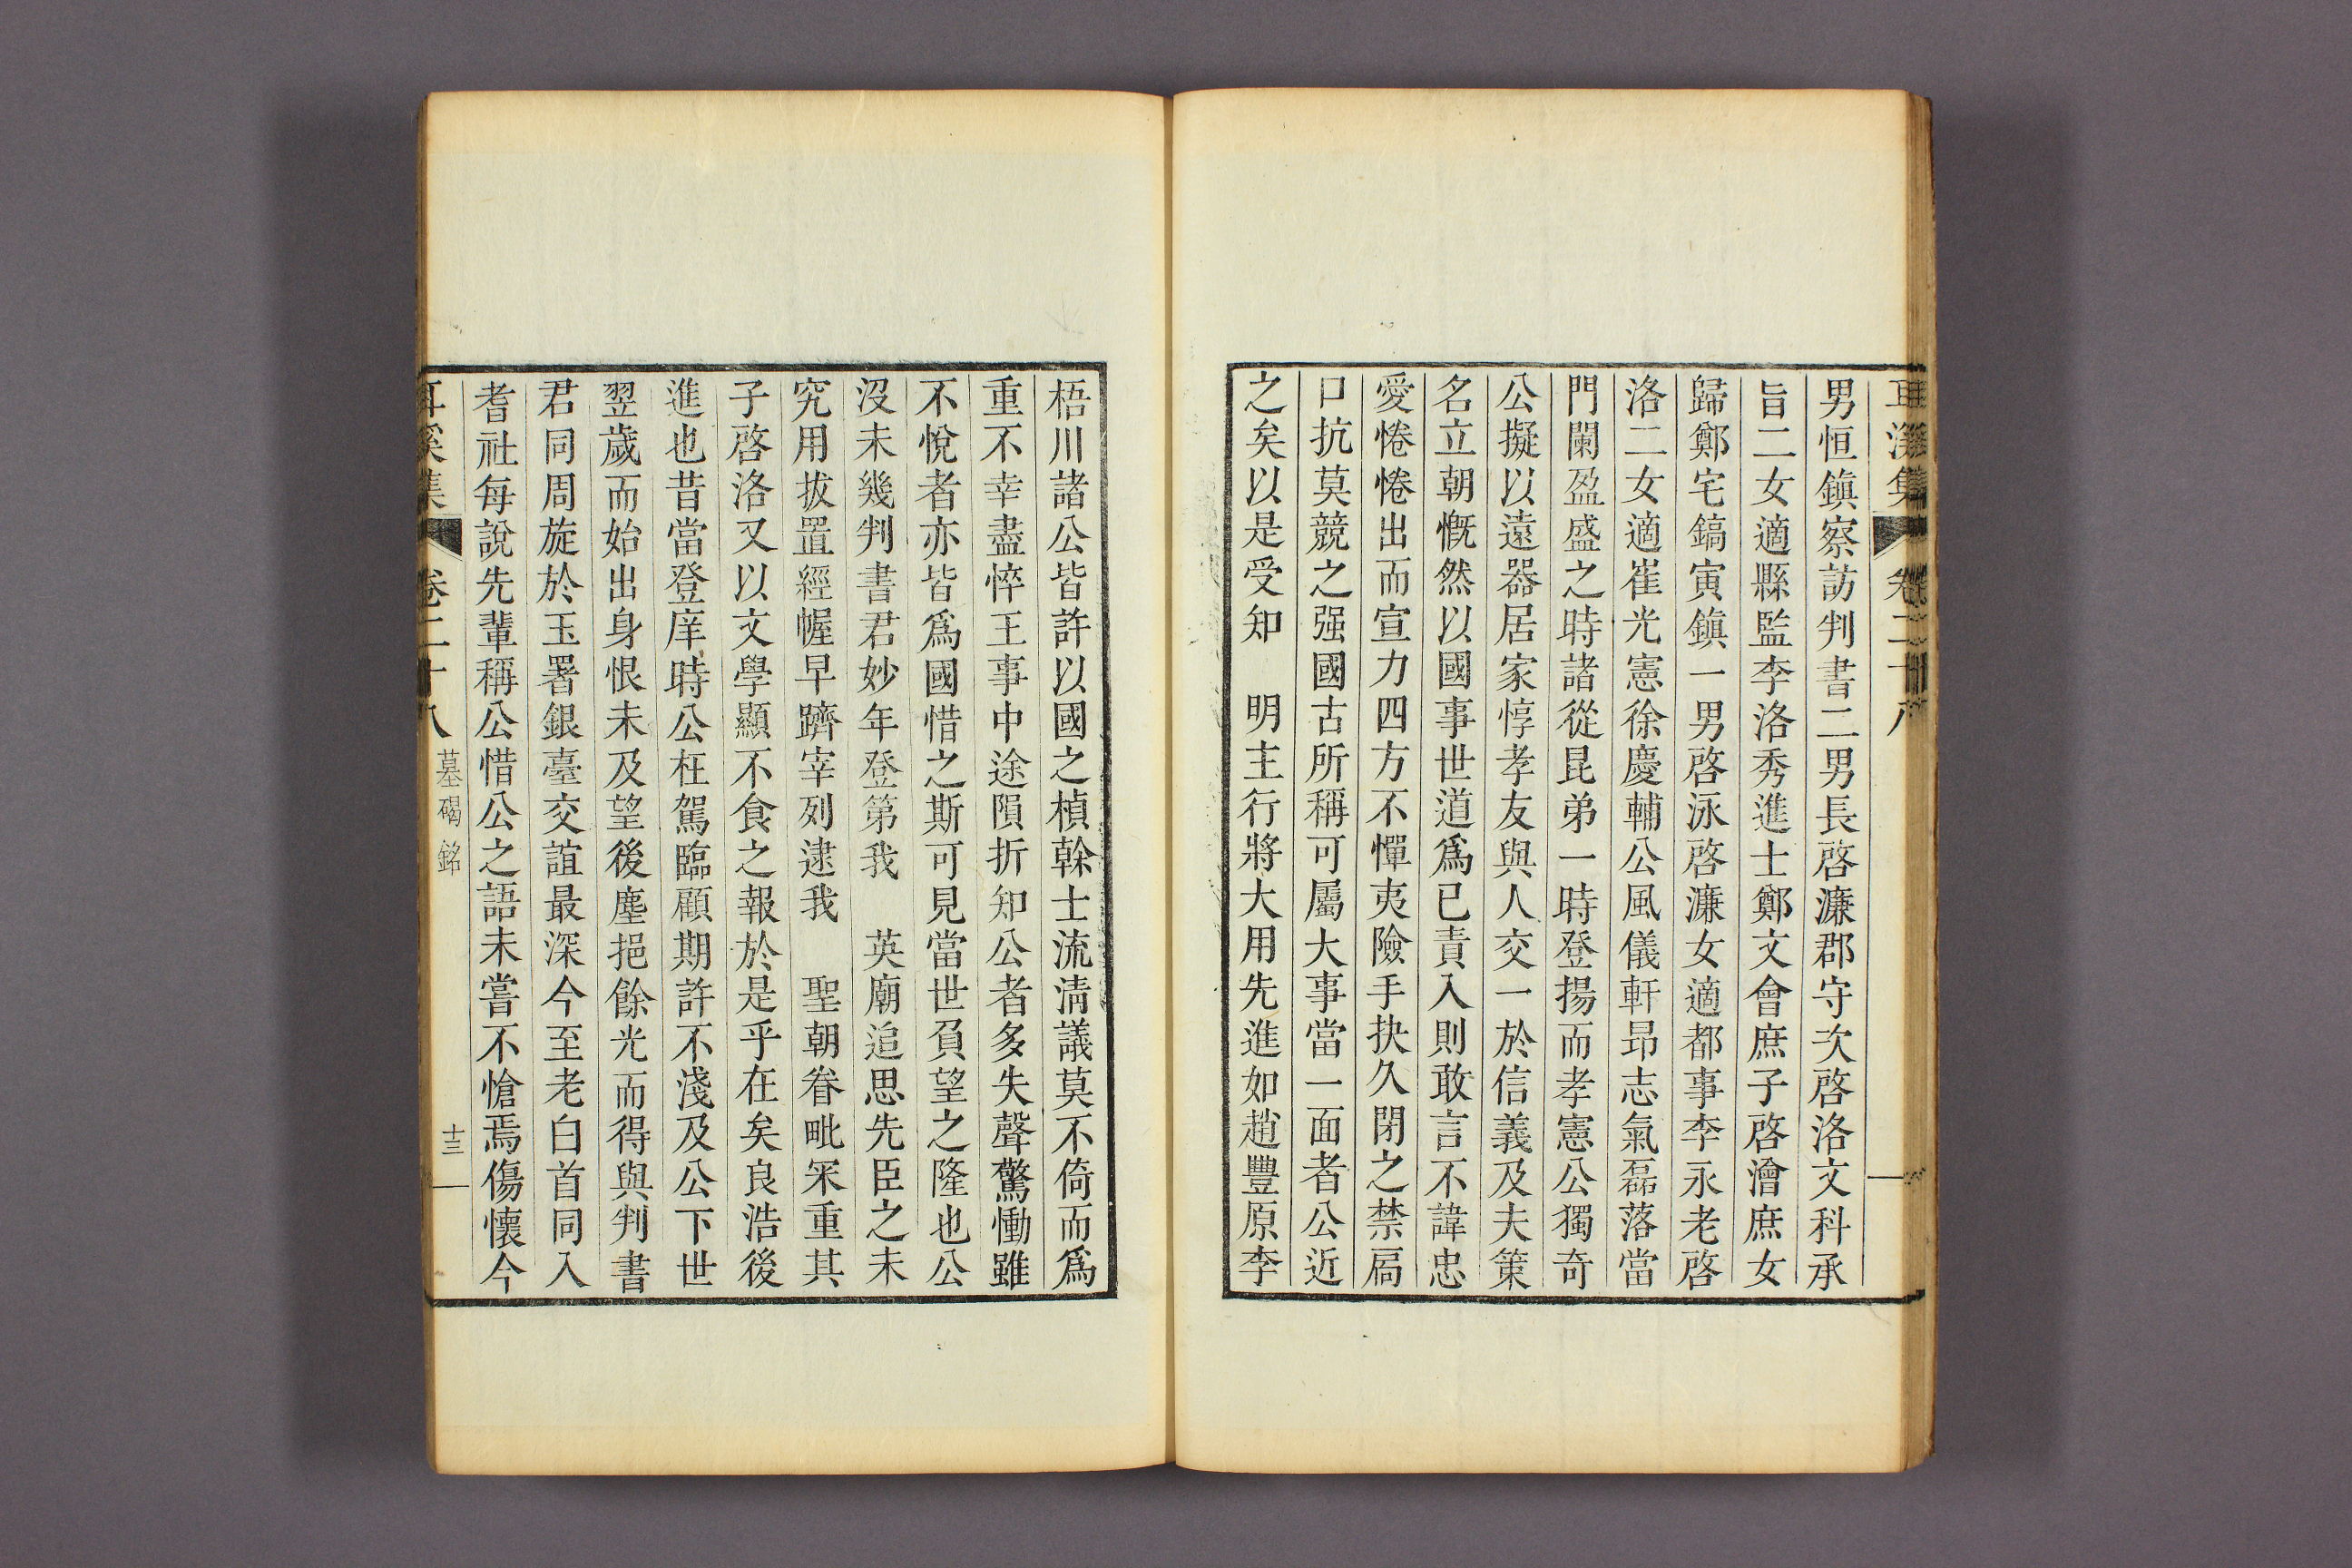 耳溪集 卷二十八
男恒鎭察訪判書二男長啓濂郡守次啓洛文科承
旨二女適縣監李洛秀進士鄭文會庶子啓澮庶女
歸鄭宅鎬寅鎭一男啓泳啓濂女適都事李永老啓
洛二女適崔光憲徐慶輔公風儀軒昻志氣磊落當
門闌盈盛之時諸從昆弟一時登揚而孝憲公獨奇
公擬以遠器居家惇孝友與人交一於信義及夫策
名立朝慨然以國事世道爲已責入則敢言不諱忠
愛惓惓出而宣力四方不憚夷險手抉久閉之禁扃
口抗莫競之强國古所稱可屬大事當一面者公近
之矣以是受知　明主行將大用先進如趙豐原李
梧川諸公皆許以國之楨榦士流淸議莫不倚而爲
重不幸盡悴王事中途隕折知公者多失聲驚慟雖
不悅者亦皆爲國惜之斯可見當世負望之隆也公
沒未幾判書君妙年登第我　英廟追思先臣之未
究用拔置經幄早躋宰列逮我　聖朝眷毗冞重其
子啓洛又以文學顯不食之報於是乎在矣良浩後
進也昔當登庠時公枉駕臨顧期許不淺及公下世
翌歲而始出身恨未及望後塵挹餘光而得與判書
君同周旋於玉署銀臺交誼最深今至老白首同入
耆社每說先輩稱公惜公之語未嘗不愴焉傷懷今
耳溪集 卷二十八 墓碣銘 十三